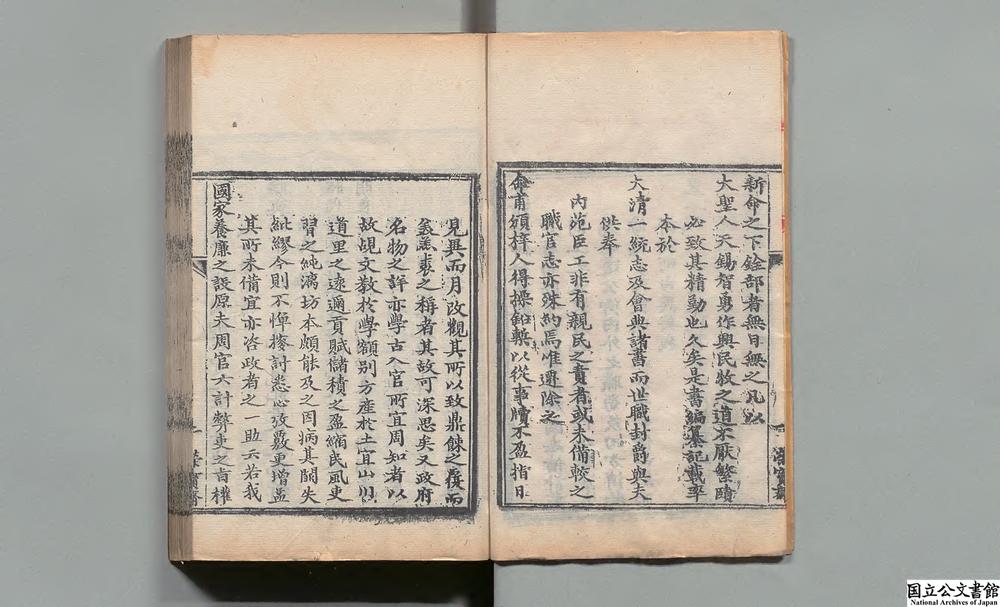 新命之下銓部者無日無之凡以
大聖人天錫智勇作興民牧之道不厭繁賾
必致其精勤也久矣是書編纂記載率
本於
大清一統志及會典諸書而世職封爵與夫
供奉
內苑臣工非有親民之責者或未備較之
職官志亦殊約焉惟遷除之
命甫頒梓人得操鉛槧以從事牘不盈指日
見異而月改觀其所以致鼎餗之覆而
之稱者其故可深思矣又政府
名物之詳亦學古入官所宜周知者以
故覘文教於學額别方產於土宜山川
道里之遠邇貢賦儲積之盈縮民風吏
習之純漓坊本頗能及之因病其闕失
紕繆今則不憚搜討悉心攷覈更增益
其所未備宜亦咨政者之一助云若我
國家養廉之設原夫周官六計弊吏之旨權
国立公文書館
National Archives of Japan